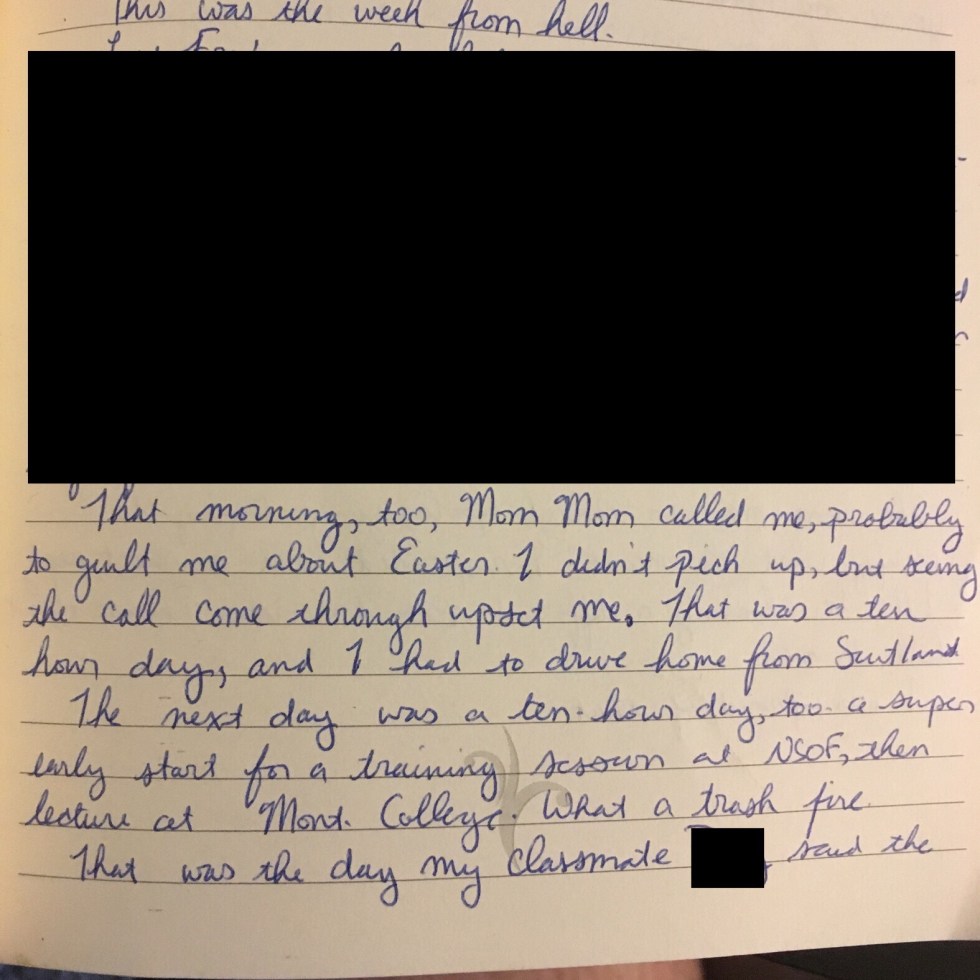 This was the week from hell.
That morning, too, Mom Mom called me, probably
to guilt me about Easter. I didn't pick up, but seeing
the call come through upset me. That was a ten
hour day, and I had to drive home from Suitland
The next day was a ten-hour day, too. a super
early start for a training session at NSOF, then
lecture at Mont. College. What a trash fire.
That was the day my classmate said the